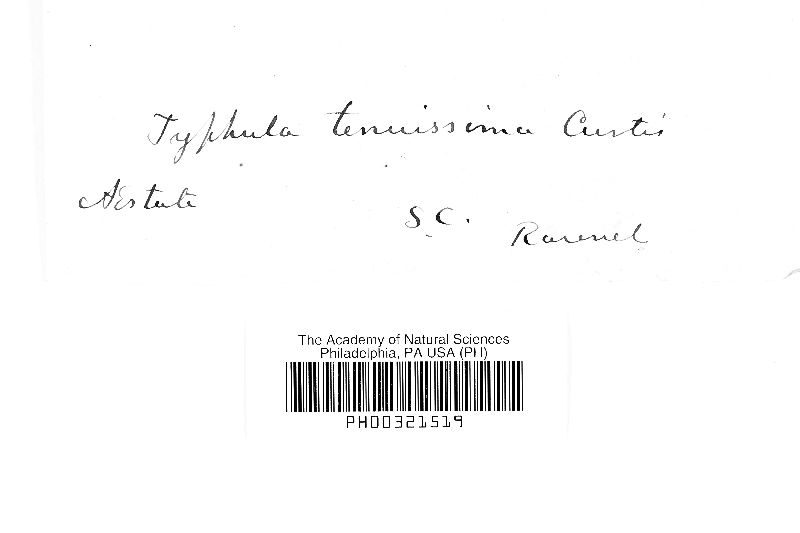 Typhula tenuissima Curtis
Aestate
S.C.
Ravenel
The Academy of Natural Sciences
Philadelphia, PA USA (PH)
PH00321519